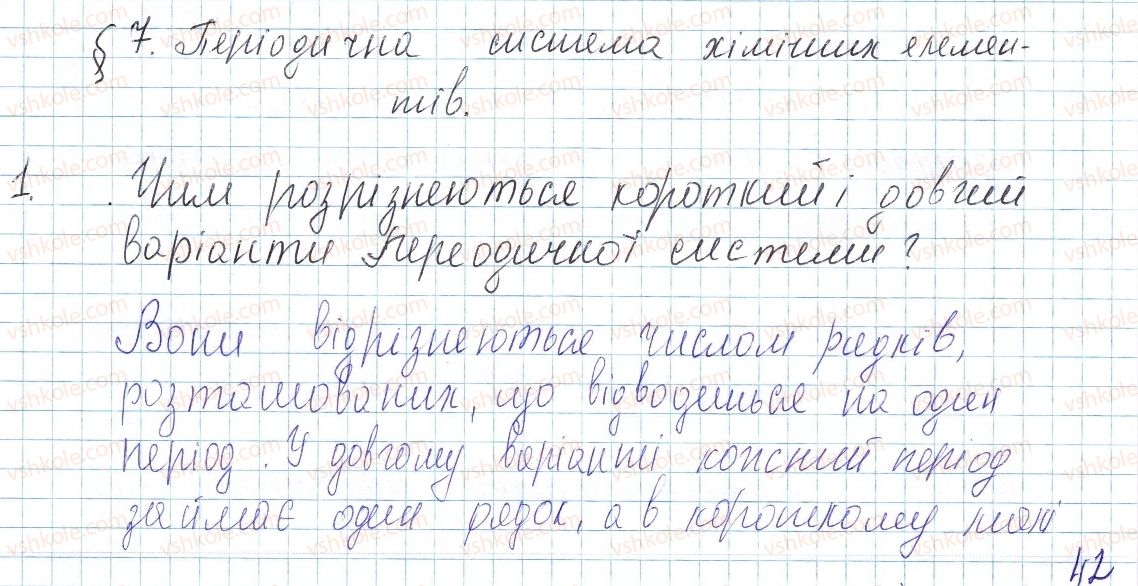 § 7. Періодична система хімічних елемен-
тів.
1. Чим розрізнюються короткий і довгий
варіанти Переодичної системи?
Вони відрізнюються числом рядків,
розташованих, що відводяться на один
період. У довгому варіанті кожний період
займає один рядок, а в короткому такі
42